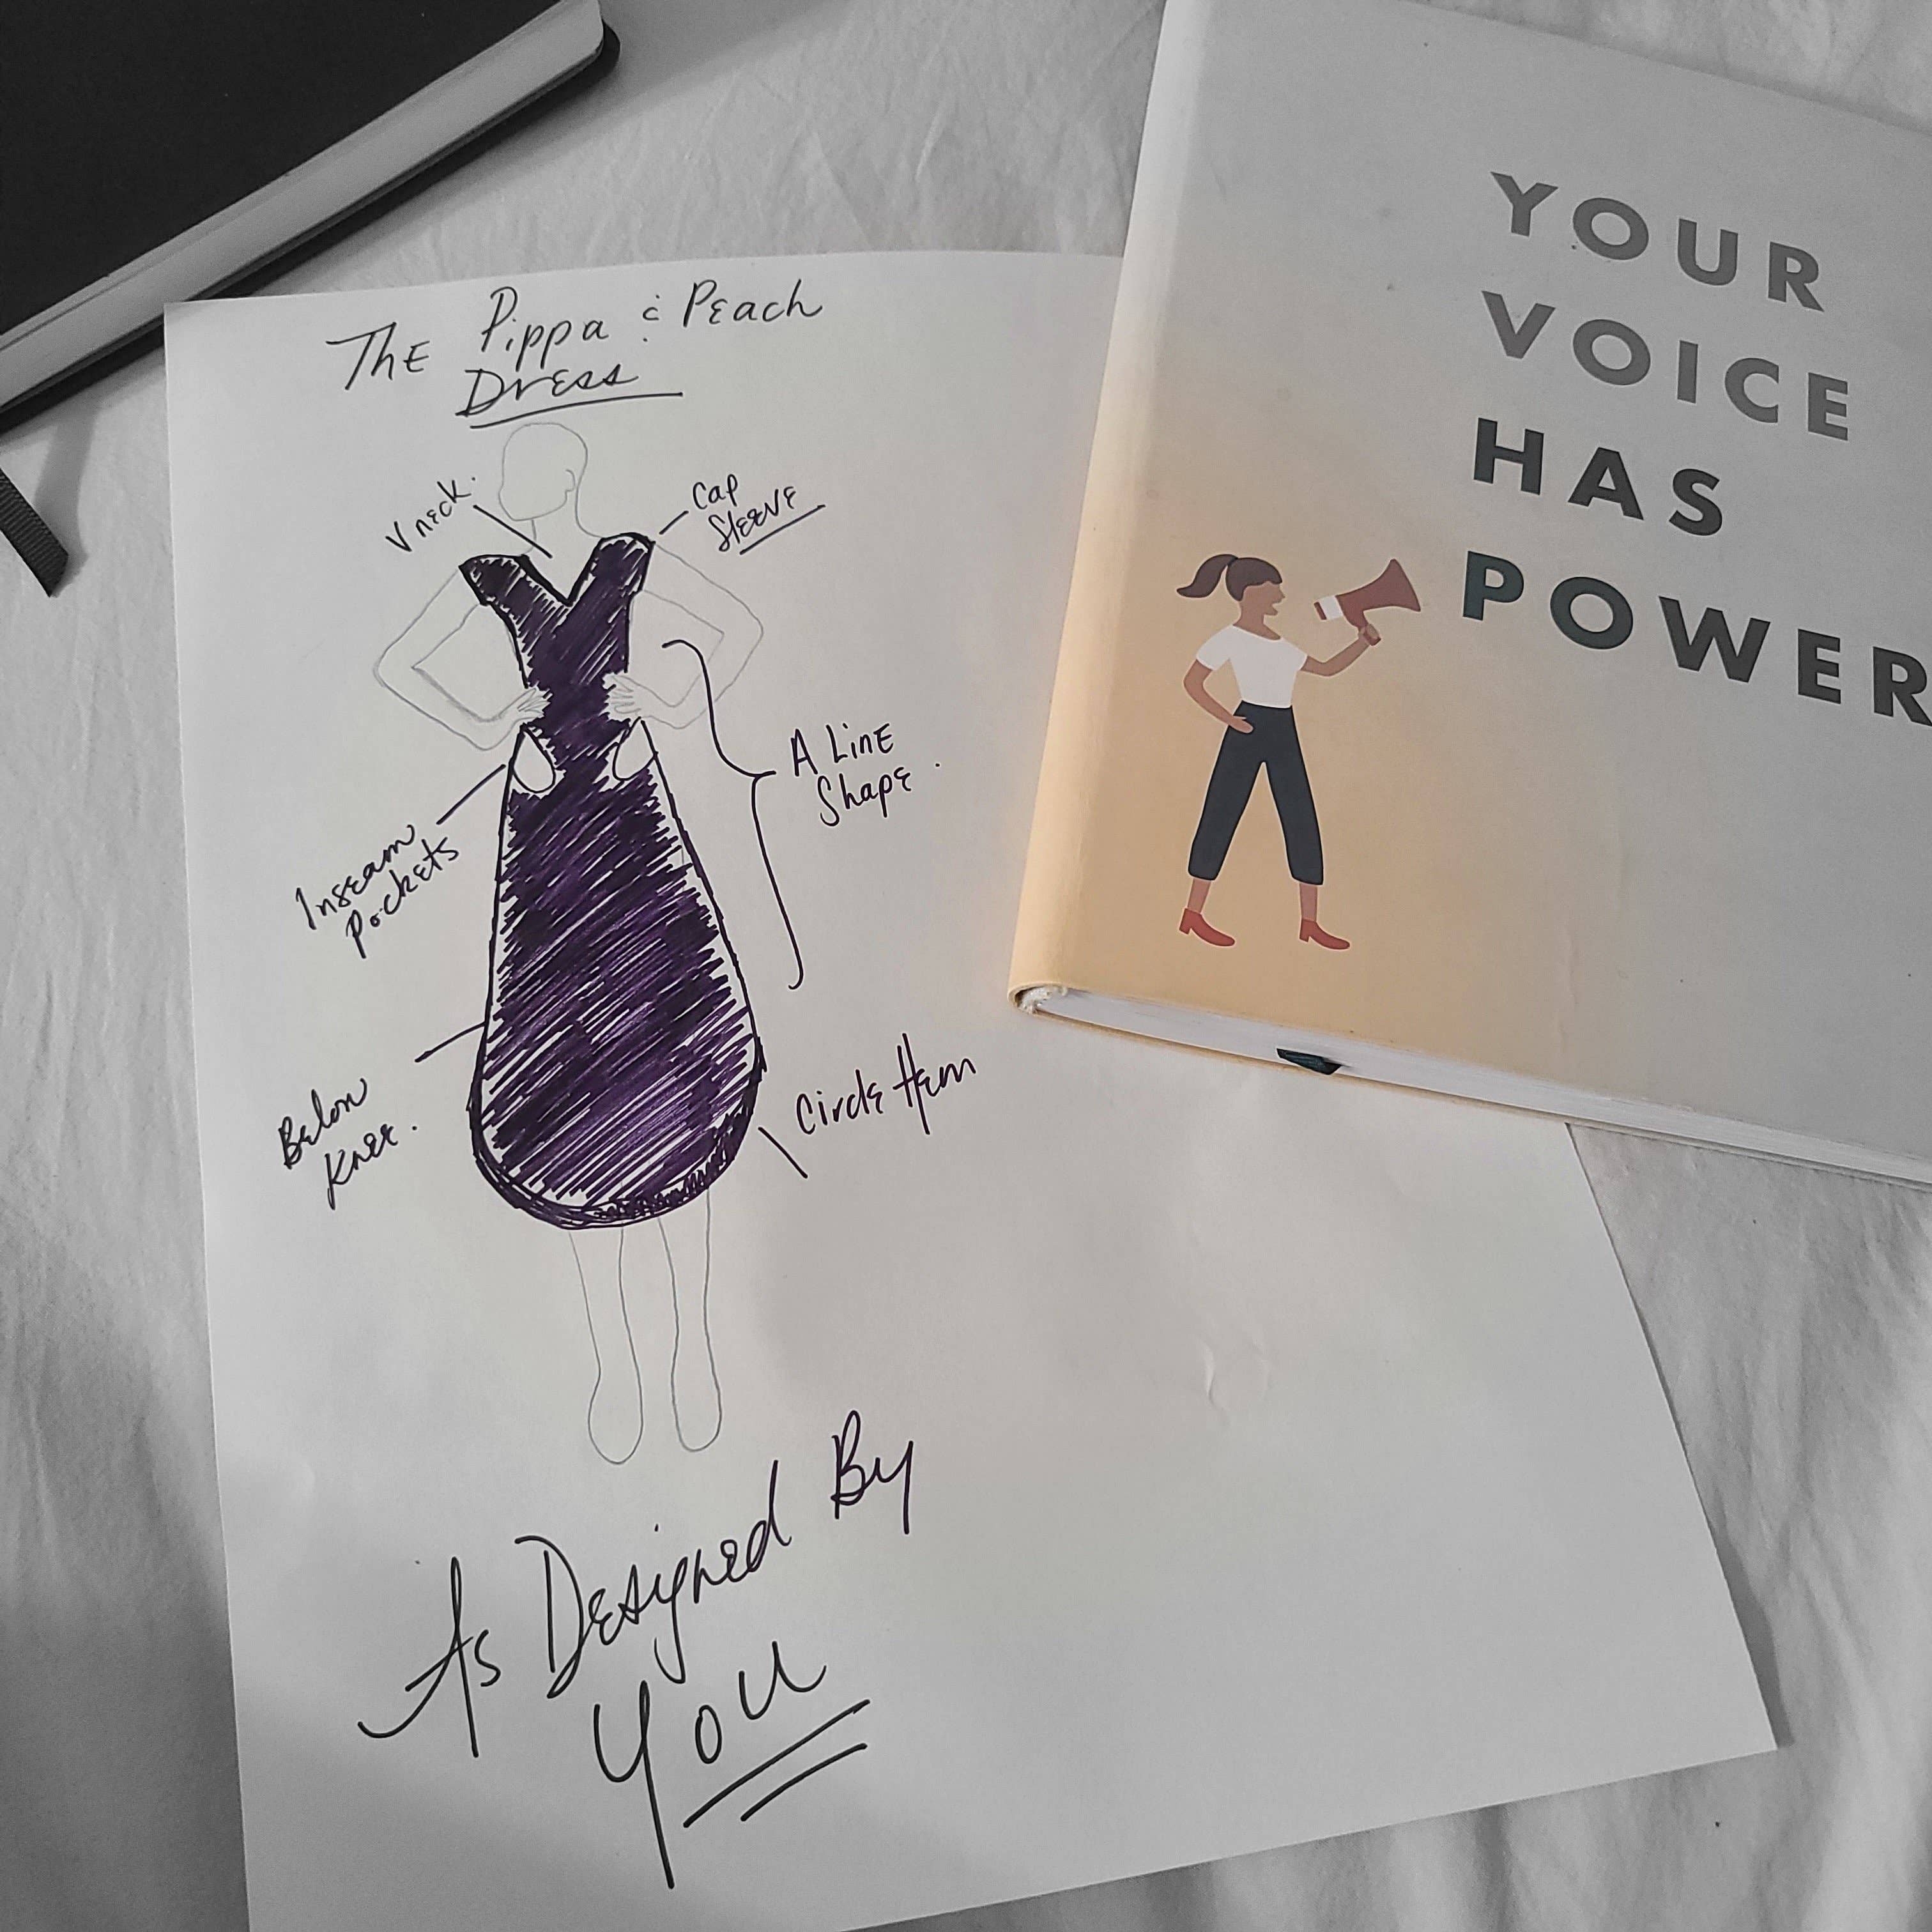 The Pippa & Peach
Dress
V neck.
Cap
Sleeve
A Line
Shape.
Inseam
Pockets
Below
Knee.
Circle Hem
As Designed By
You
YOUR
VOICE
HAS
POWER